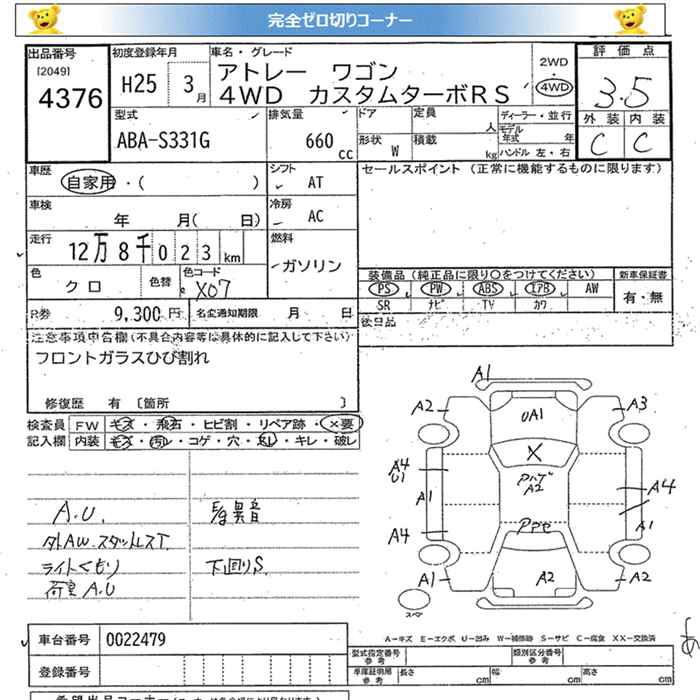 完全ゼロ切りコーナー
出品番号 初度登録年月 車名・グレード 2WD 評価点
[2049] 4376 H25 3月 アトレー ワゴン 4WD 3.5
4WD カスタムターボRS 外装 内装
型式 排気量 ドア 定員 人 ディーラー・並行 C C
ABA-S331G 660cc 形状 W 積載 kg モデル年式 年 ハンドル 左・右
車歴 シフト セールスポイント (正常に機能するものに限ります)
自家用・( ) AT
車検 冷房
年 月( 日) AC
走行 燃料
12万8千023km ガソリン
色 クロ 色替 色コード X07 装備品(純正品に限り○をつけてください) 新車保証書
PS PW ABS エアB AW 有・無
SR ナビ TV カワ
R券 9,300円 名変通知期限 月 日
後日品
注意事項申告欄(不具合内容等は具体的に記入して下さい)
フロントガラスひび割れ
修復歴 有 〔箇所 〕
検査員 FW キズ・飛石・ヒビ割・リペア跡・X要
記入欄 内装 キズ・汚レ・コゲ・穴・スレ・キレ・破レ
A.U.
外AW.スタッドレスT.
ライトくもり
荷室A.U
E/g異音
下回りS.
A1
A2 UA1 A3
X
A4 U1 A4
A1 A2 A1
A4
A1 A2 A2
スペア
A-キズ E-エクボ U-凹み W-補修跡 S-サビ C-腐食 XX-交換済
車台番号 0022479
登録番号
型式指定番号 参考 類別区分番号 参考
車庫証明用 参考 長さ cm 幅 cm 高さ cm